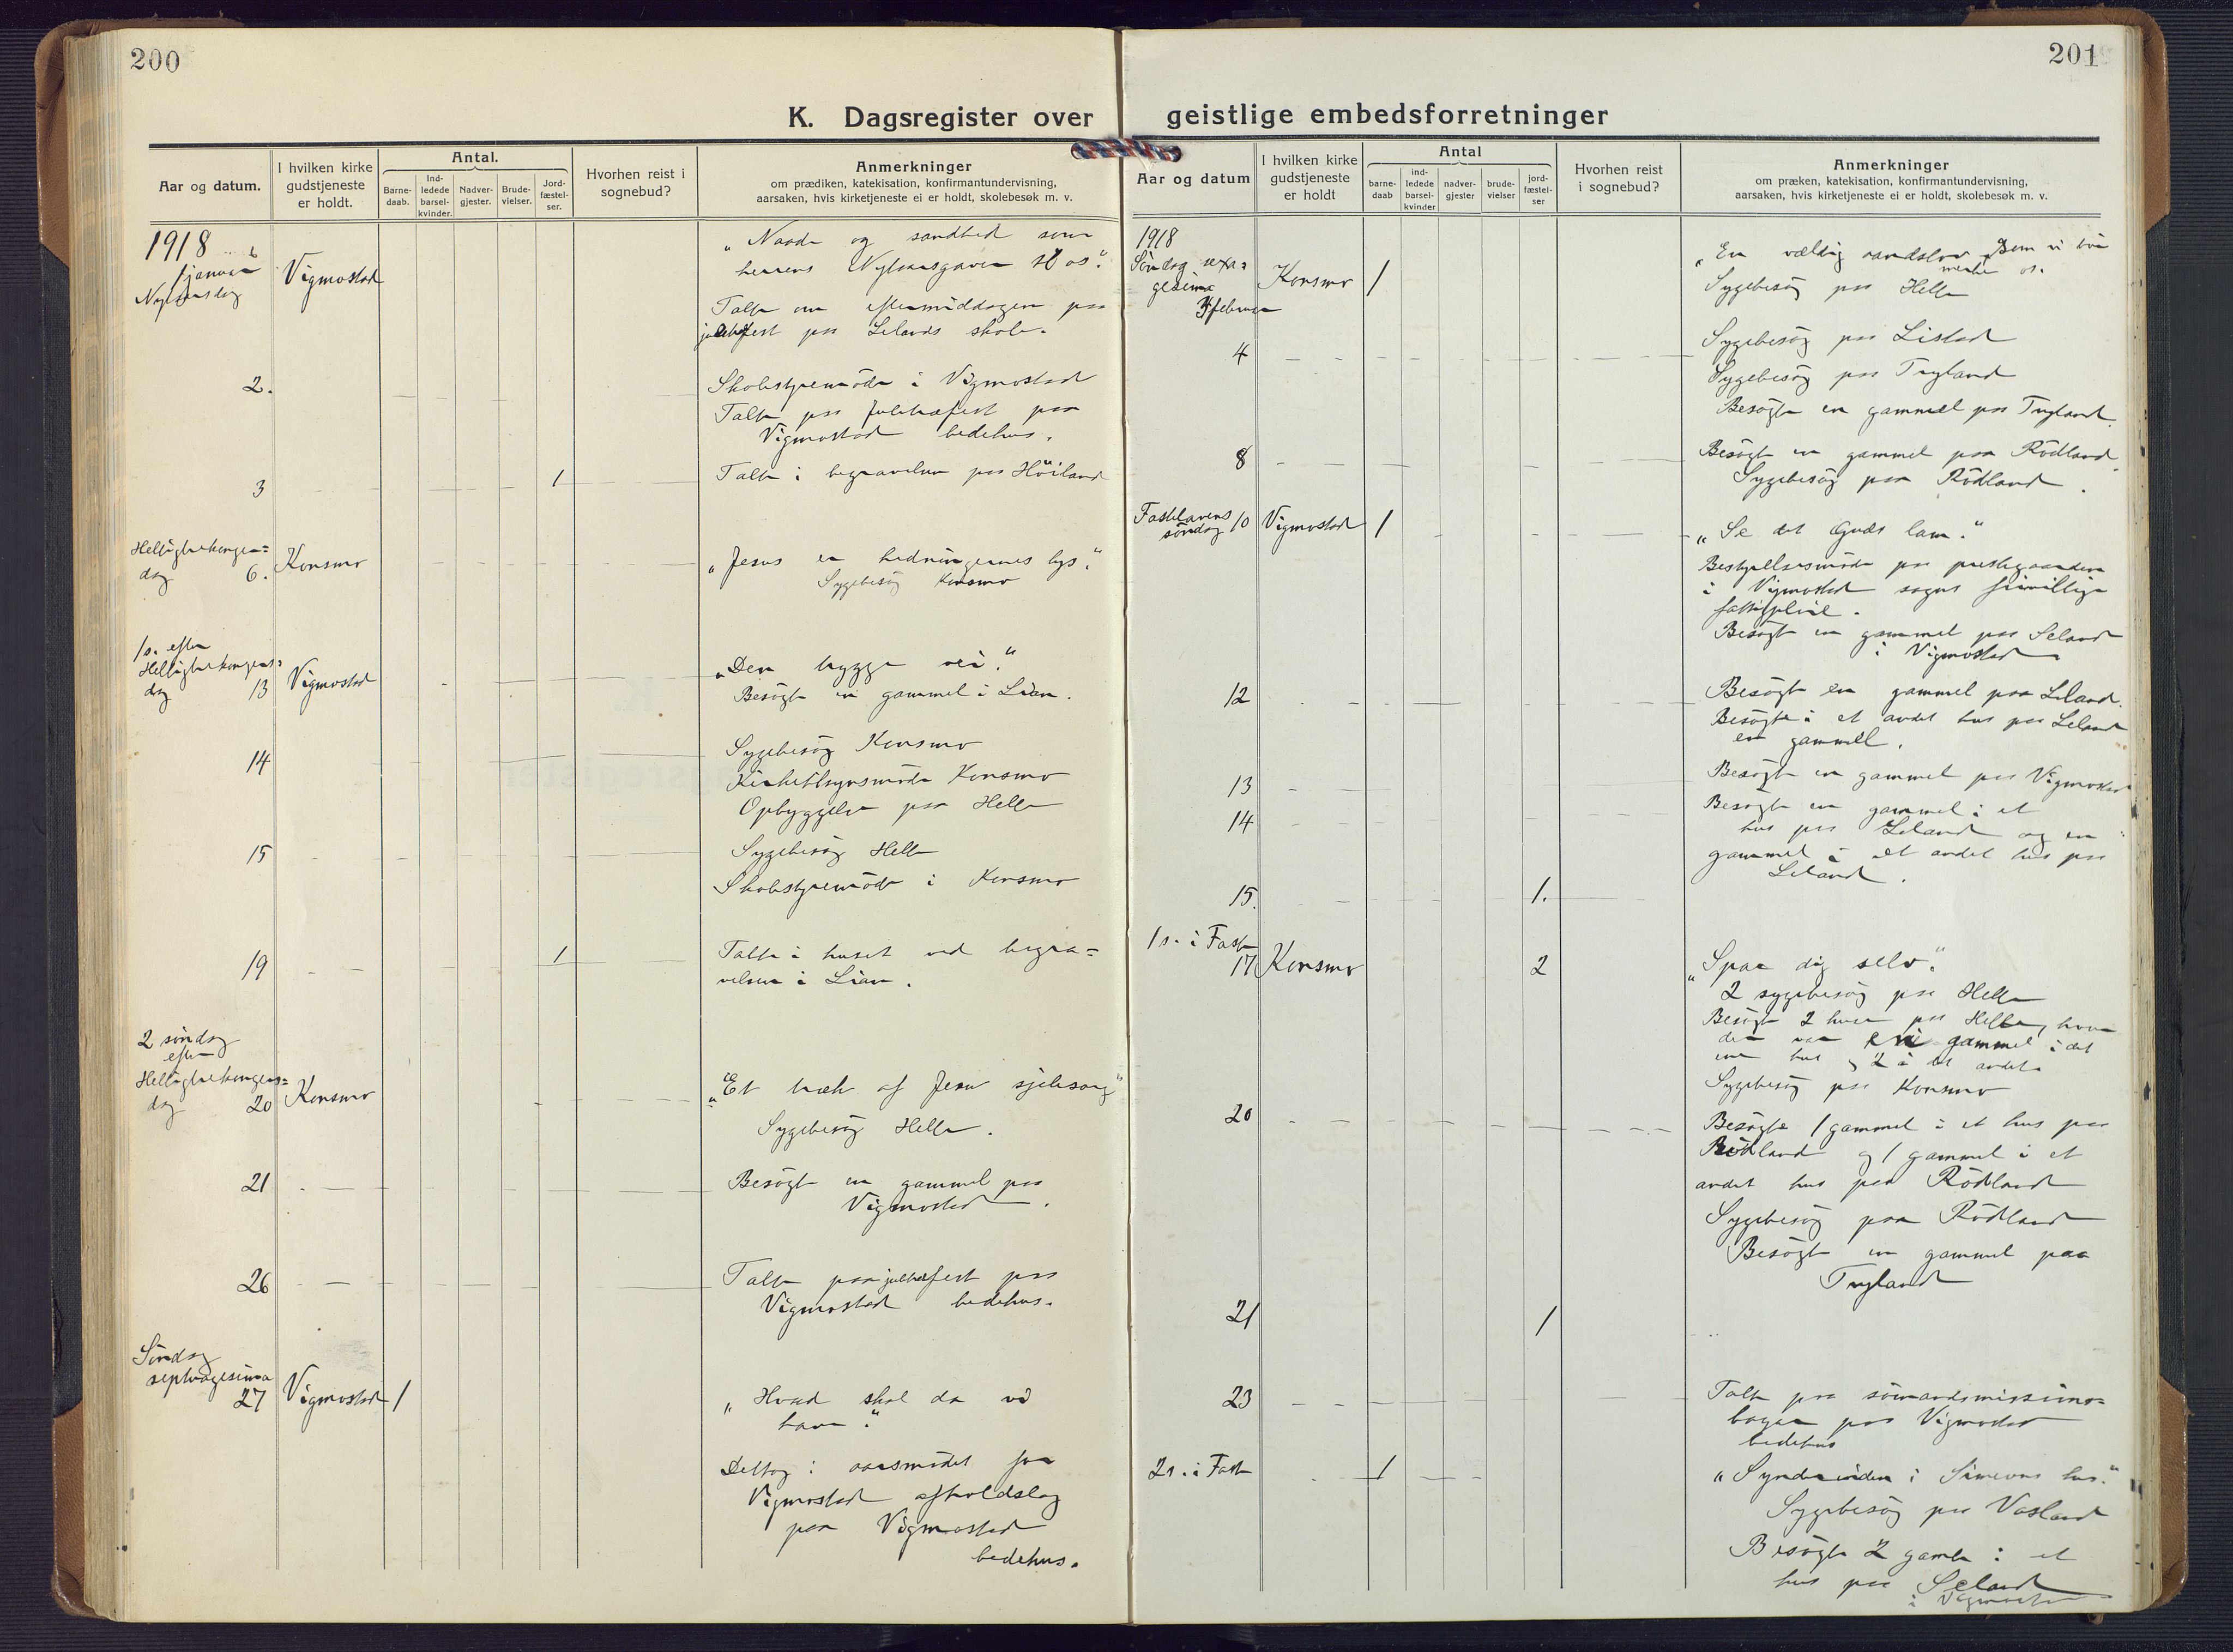 200
K. Dagsregister over
Aar og datum.
I hvilken kirke gudstjeneste er holdt.
Antal.
Barne-daab.
Ind-ledede barsel-kvinder.
Nadver-gjester.
Brude-vielser.
Jord-fæstel-ser.
Hvorhen reist i sognebud?
Anmerkninger
om prædiken, katekisation, konfirmantundervisning,
aarsaken, hvis kirketjeneste ei er holdt, skolebesøk m. v.
1918
1 januar
Nytaarsdag
Vigmostad
„Naade og sandhed som
herrens Nytaarsgaver til os."
Talte om eftermiddagen paa
juletræfest paa Lelands skole.
2.
Skolestyremöde i Vigmostad
Talte paa juletræfest paa
Vigmostad bedehus.
3
1
Talte i begravelse paa Höiland
Helligtrekonger=
dag 6.
Konsmo
„Jesus er hedningernes lys."
Sygebesög Konsmo
1 s. efter
Helligtrekongers=
dag 13
Vigmostad
„Den trygge vei."
Besögt en gammel i Lian.
14
Sygebesög Konsmo
Kirketilsynsmöde Konsmo
Opbyggelse paa Helle
15
Sygebesög Helle
Skolestyremöde i Konsmo
19
1
Talte i huset ved begra=
velsen i Lian.
2 söndag
efter
Helligtrekongers=
dag 20
Konsmo
„Et træk af Jesu sjelesorg"
Sygebesög Helle.
21
Besögt en gammel paa
Vigmostad.
26
Talte paa juletræfest paa
Vigmostad bedehus.
Söndag
septuagesima
27
Vigmostad
1
„Hvad skal da vi
have."
Deltog i aarsmödet for
Vigmostad afholdslag
paa Vigmostad
bedehus.
201
geistlige embedsforretninger
Aar og datum
I hvilken kirke gudstjeneste er holdt
Antal
barne-daab
ind-ledede barsel-kvinder
nadver-gjester
brude-vielser
jord-fæstel-ser
Hvorhen reist i sognebud?
Anmerkninger
om præken, katekisation, konfirmantundervisning,
aarsaken, hvis kirketjeneste ei er holdt, skolebesøk m. v.
1918
Söndag sexa=
gesima
3 februar
Konsmo
1
„En vældig aandslov som vi bör
merke os.
Sygebesög paa Helle
4
Sygebesög paa Listad
Sygebesög paa Tryland
Besögte en gammel paa Tryland.
8
Besögt en gammel paa Rödland.
Sygebesög paa Rödland.
Fastelavens
söndag 10
Vigmostad
1
„Se det Guds lam."
Bestyrelsesmöde paa prestegaarden
i Vigmostad sogns frivillige
fattigpleie.
Besögt en gammel paa Seland
i Vigmostad
12
Besögt en gammel paa Leland.
Besögte i et andet hus paa Leland
en gammel.
13
Besögt en gammel paa Vigmostad
14
Besögte en gammel i et
hus paa Leland og en
gammel i et andet hus paa
Leland.
15.
1.
1 s. i Faste
17
Konsmo
2
„Spar dig selv."
2 sygebesög paa Helle
Besögt 2 huse paa Helle, hvor
der var en gammel i det
ene hus og 2 i det andet.
Sygebesög paa Konsmo
20
Besögte 1 gammel i et hus paa
Rödland og 1 gammel i et
andet hus paa Rödland
Sygebesög paa Rödland
Besögt en gammel paa
Tryland
21
1
23
Talte paa sömandsmissions=
paa Vigmostad
bedehus
2 s. i Faste
1
„Synderinden i Simons hus."
Sygebesög paa Vasland
Besögte 2 gamle i et
hus paa Seland
i Vigmostad